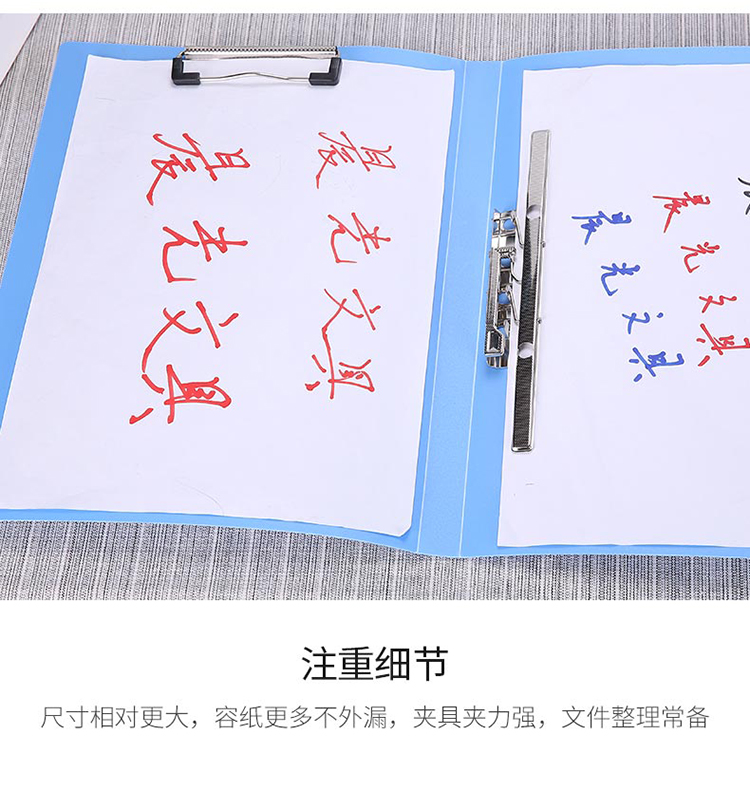 晨光文具
晨光文具
晨光文具
晨光文具
注重细节
尺寸相对更大，容纸更多不外漏，夹具夹力强，文件整理常备